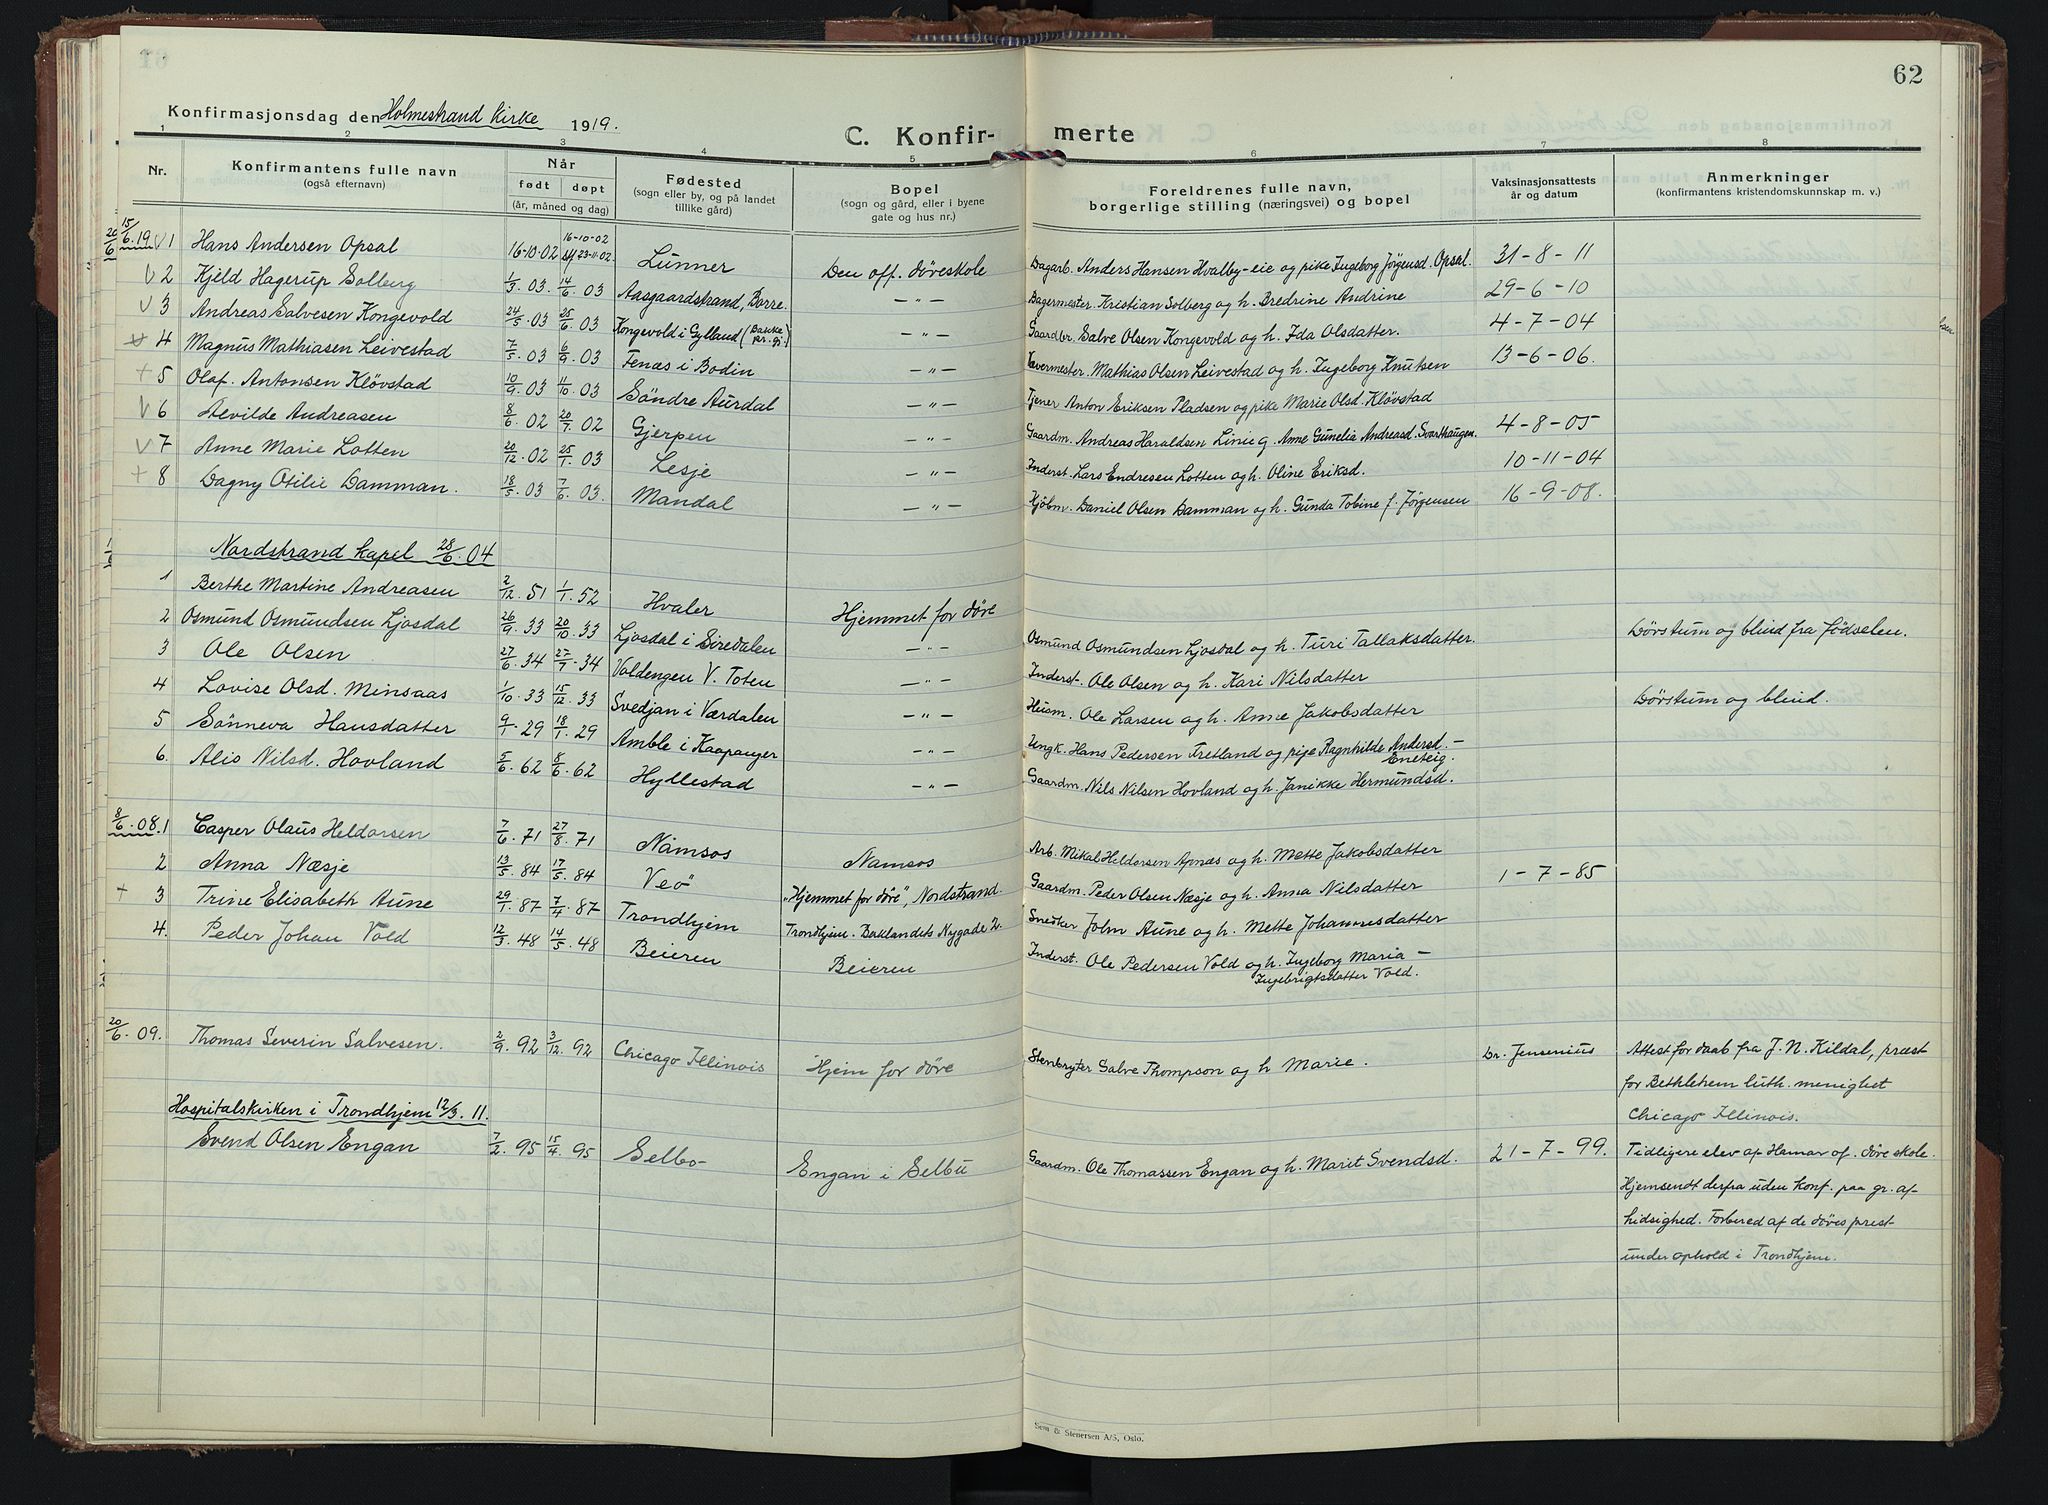 62
Konfirmasjonsdag den Holmestrand Kirke 1919.
C. Konfir- merte
1 2 3 4 5 6 7 8
Nr. Konfirmantens fulle navn (også efternavn) Når født døpt (år, måned og dag) Fødested (sogn eller by, og på landet tillike gård) Bopel (sogn og gård, eller i byene gate og hus nr.) Foreldrenes fulle navn, borgerlige stilling (næringsvei) og bopel Vaksinasjonsattests år og datum Anmerkninger (konfirmantens kristendomskunnskap m. v.)
20/6 15/6.19 V 1 Hans Andersen Opsal 16-10-02 16-10-02 23-11-02 Lunner Den off. døveskole Dagarb. Anders Hansen Hvalby-eie og pike Ingeborg Jørgensd. Opsal. 31-8-11
V 2 Kjeld Hagerup Solberg 1/3 03. 14/6 03 Aasgaardstrand, Borre. —"— Bagermester. Kristian Solberg og h. Bredrine Andrine 29-6-10
V 3 Andreas Salvesen Kongevold 24/5 03 25/6 03 Kongevold i Gylland (Bakke pr. gj.) —"— Gaardbr. Salve Olsen Kongevold og h. Ida Olsdatter. 4-7-04
4 Magnus Mathiasen Leivestad 7/5. 03 6/9. 03 Fenæs i Bodin —"— Mathias Olsen Leivestad og h. Ingeborg Knutsen 13-6-06.
+ 5 Olaf. Antonsen Kløvstad 10/9 03 11/10 03 Søndre Aurdal —"— Tjener Anton Eriksen Pladsen og pike Marie Olsd. Kløvstad
V 6 Alvilde Andreasen 8/6 02 20/7. 02 Gjerpen —"— Gaardm. Andreas Haraldsen Linie g. Anne Gunelia Andreasd. Svarthaugen. 4-8-05
V 7 Anne Marie Lotten 20/12. 02 25/1. 03 Lesje —"— Inderst. Lars Endresen Lotten og h. Oline Eriksd. 10-11-04
+ 8 Dagny Otilie Damman. 18/5. 03 7/6. 03. Mandal —"— Daniel Olsen Damman og h. Gunda Tobine f. Jørgensen 16-9-08.
Nordstrand kapel 28/6. 04
1 Berthe Martine Andreasen 2/12. 51 1/1. 52 Hvaler Hjemmet for døve
2 Osmund Osmundsen Ljosdal 26/9. 33 20/10. 33 Ljosdal i Siredalen —"— Osmund Osmundsen Ljosdal og h. Turi Tallaksdatter. Døvstum og blind fra fødselen.
3 Ole Olsen 27/6. 34 27/7. 34 Valdengen V. Toten —"— Inderst. Ole Olsen og h. Kari Nilsdatter
4 Lovise Olsd. Minsaas 1/10. 33 15/12. 33 Svedjan i Værdalen —"— Husm. Ole Larsen og h. Anne Jakobsdatter Døvstum og blind.
5 Sønneva Hansdatter 9/1. 29 18/1. 29 Amble i Kaapanger —"— Ungk. Hans Pedersen Fretland og pige Ragnhilde Andersd. - Eneteig.
6. Alis Nilsd. Hovland 5/6. 62 8/6. 62 Hyllestad —"— Gaardm. Nils Nilsen Hovland og h. Janikke Hermundsd.
8/6. 08. 1 Casper Olaus Heldorsen 7/6. 71 27/8. 71 Namsos Namsos Arb. Mikal Heldorsen Apnæs og h. Mette Jakobsdatter
2 Anna Næsje 13/5. 84 17/5. 84 Veö "Hjemmet for døve", Nordstrand. Gaardm. Peder Olsen Næsje og h. Anna Nilsdatter 1-7-85
+ 3 Trine Elisabeth Aune 29/1. 87 7/4. 87 Trondhjem Trondhjem. Baklandets Nygade 2. Snedker John Aune og h. Mette Johannesdatter
4. Peder Johan Vold 12/3. 48 14/5. 48 Beieren Beieren Inderst. Ole Pedersen Vold og h. Ingeborg Maria - Ingebrigtsdatter Vold.
20/6. 09. Thomas Severin Salvesen. 2/9. 92 3/12. 92 Chicago Illinois Hjem for døve Stenbryter Salve Thompson og h Marie. Dr. Jensenius Attest for daab fra J. N. Kildal, præst
for Bethlehem luth. menighet
Chicago Illinois.
Hospitalskirken i Trondhjem 12/3. 11.
Svend Olsen Engan 7/2. 95 15/4. 95 Selbo Engan i Selbu Gaardm. Ole Thomassen Engan og h. Marit Svendsd. 21-7-99. Tidligere elev af Hamar of. døveskole.
Hjemsendt derfra uden konf. paa gr. af-
hidsighed. Forbered af de døves prest
under ophold i Trondhjem.
Sem & Stenersen A/S, Oslo.